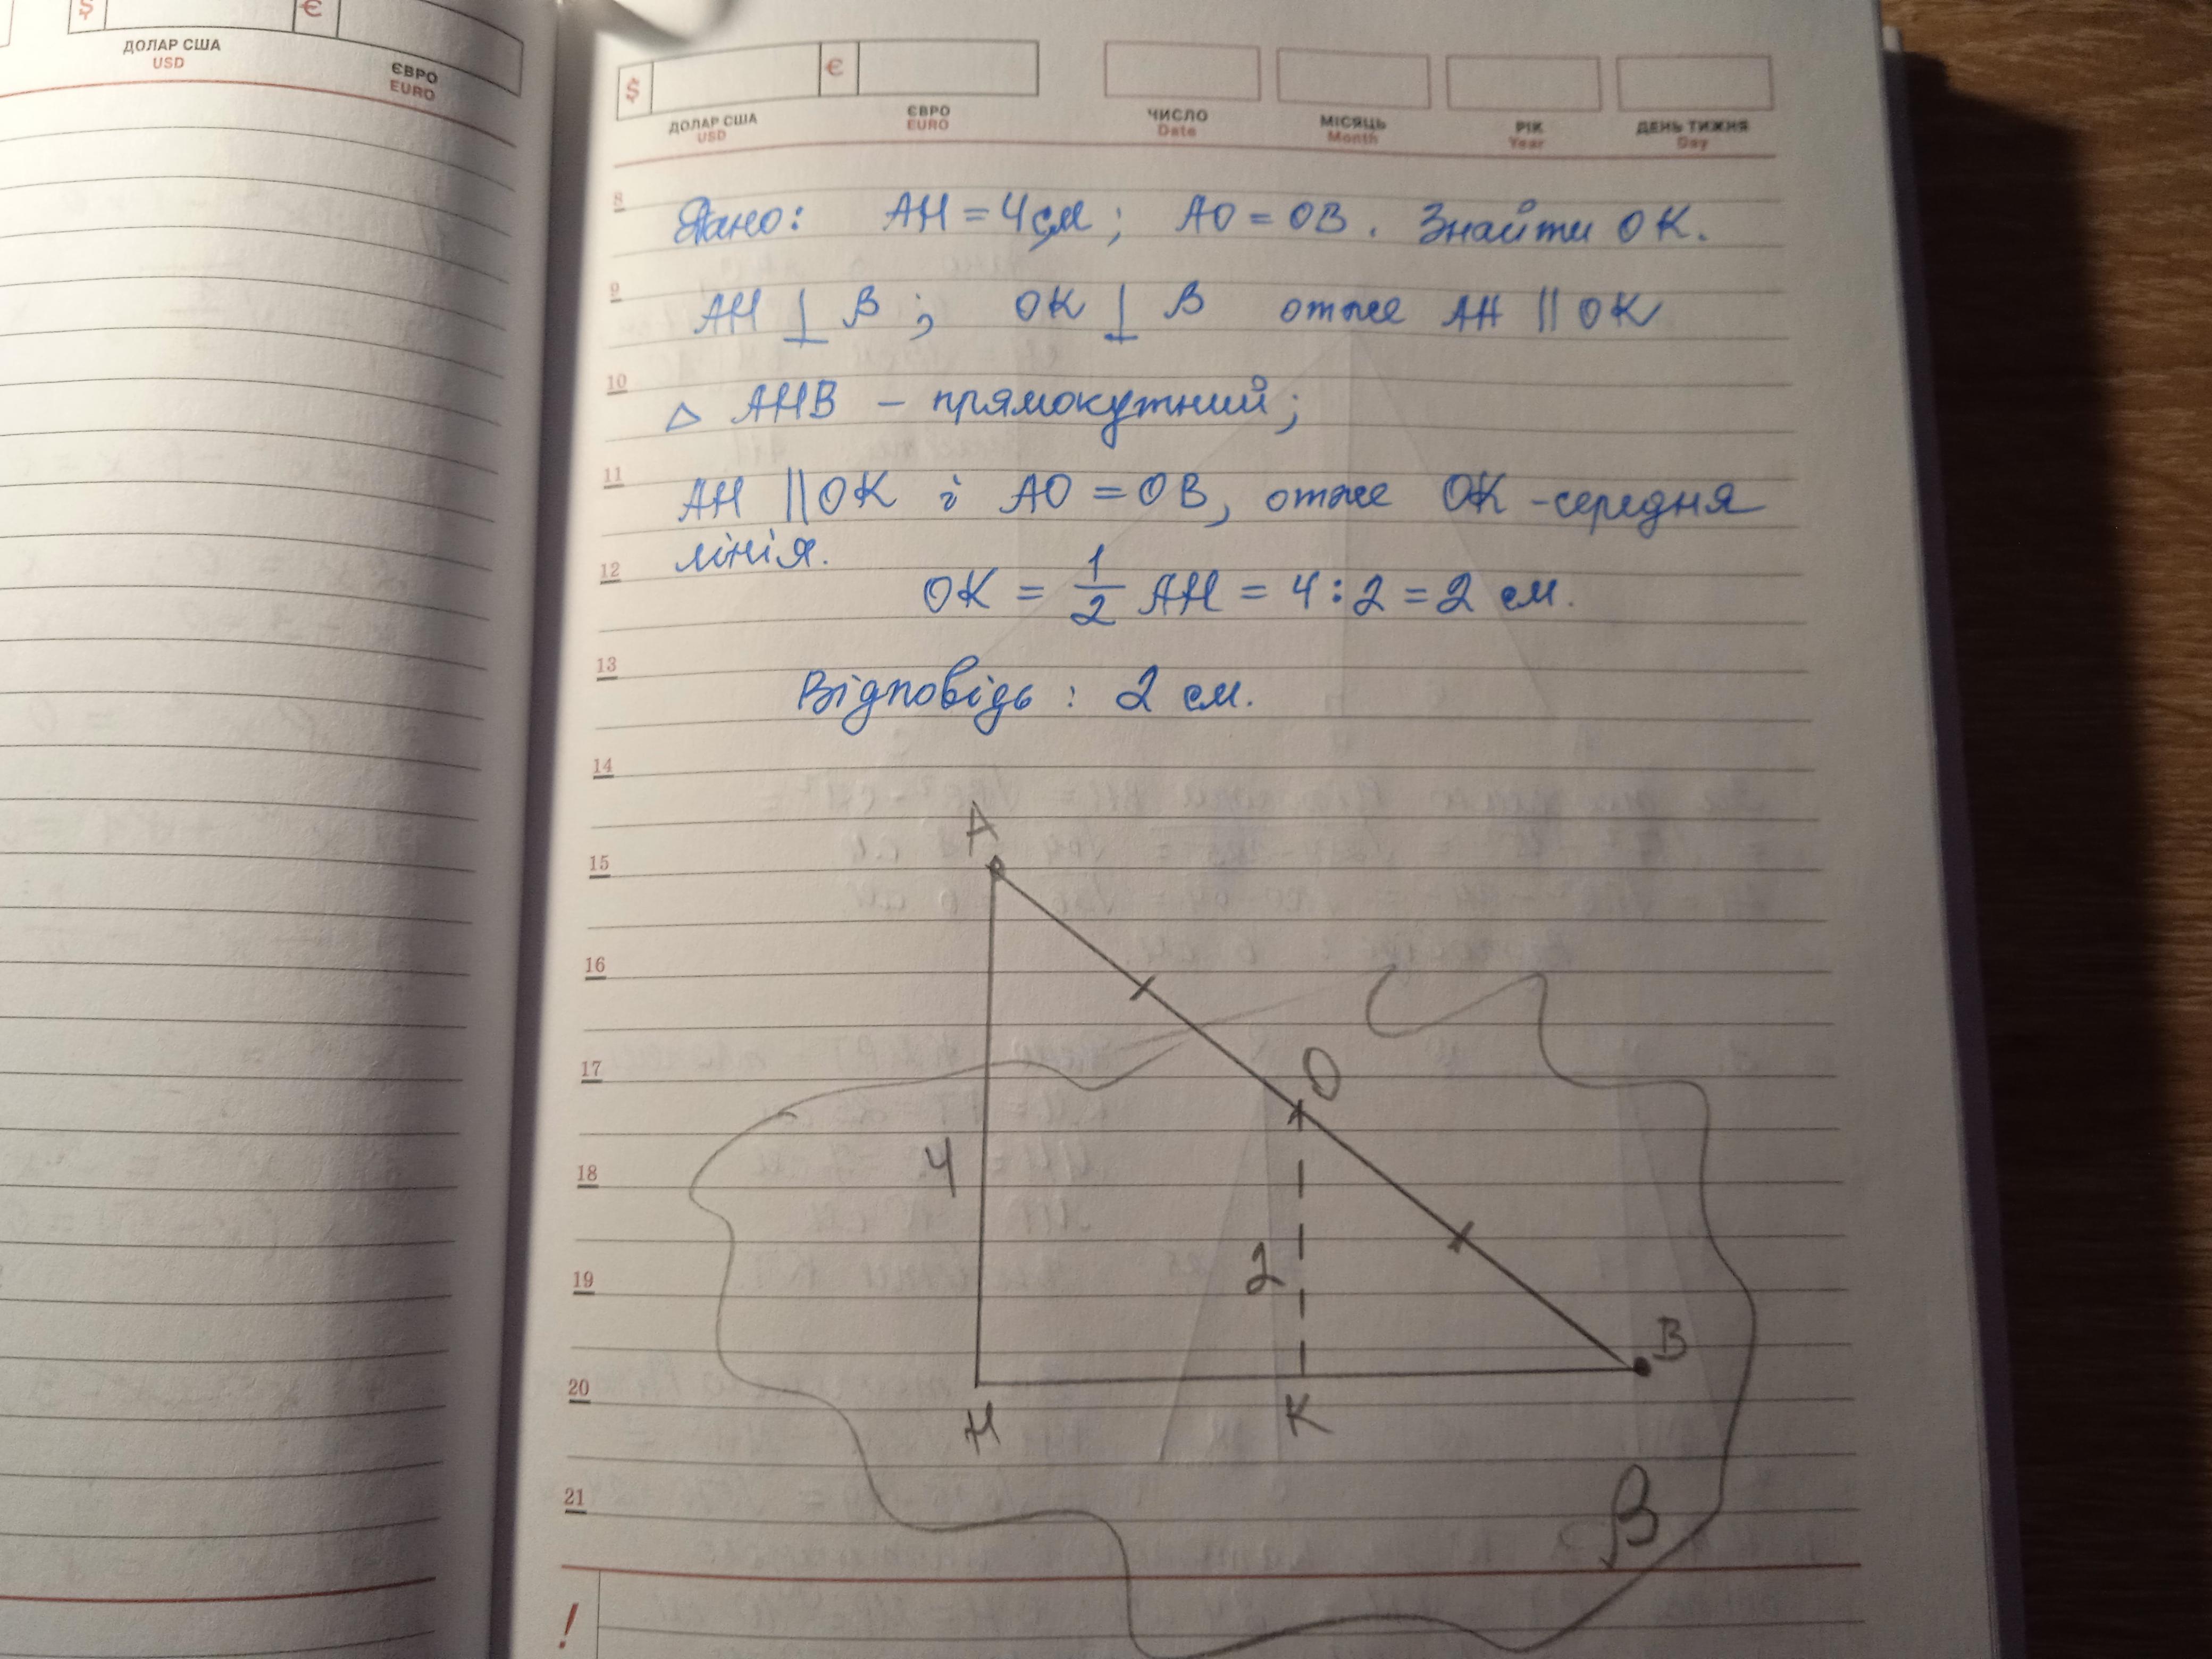 $
€
ДОЛАР США
USD
ЄВРО
EURO
$
€
ДОЛАР США
USD
ЄВРО
EURO
ЧИСЛО
Date
МІСЯЦЬ
Month
РІК
Year
ДЕНЬ ТИЖНЯ
Day
8
Дано: AH = 4 см; AO = OB. Знайти OK.
9
AH ⊥ β; OK ⊥ β отже AH || OK
10
△ AHB – прямокутний;
11
AH || OK і AO = OB, отже OK - середня
лінія.
12
OK = 1/2 AH = 4 : 2 = 2 см.
13
Відповідь: 2 см.
14
A
15
16
17
O
4
18
2
19
B
20
H
K
β
21
!